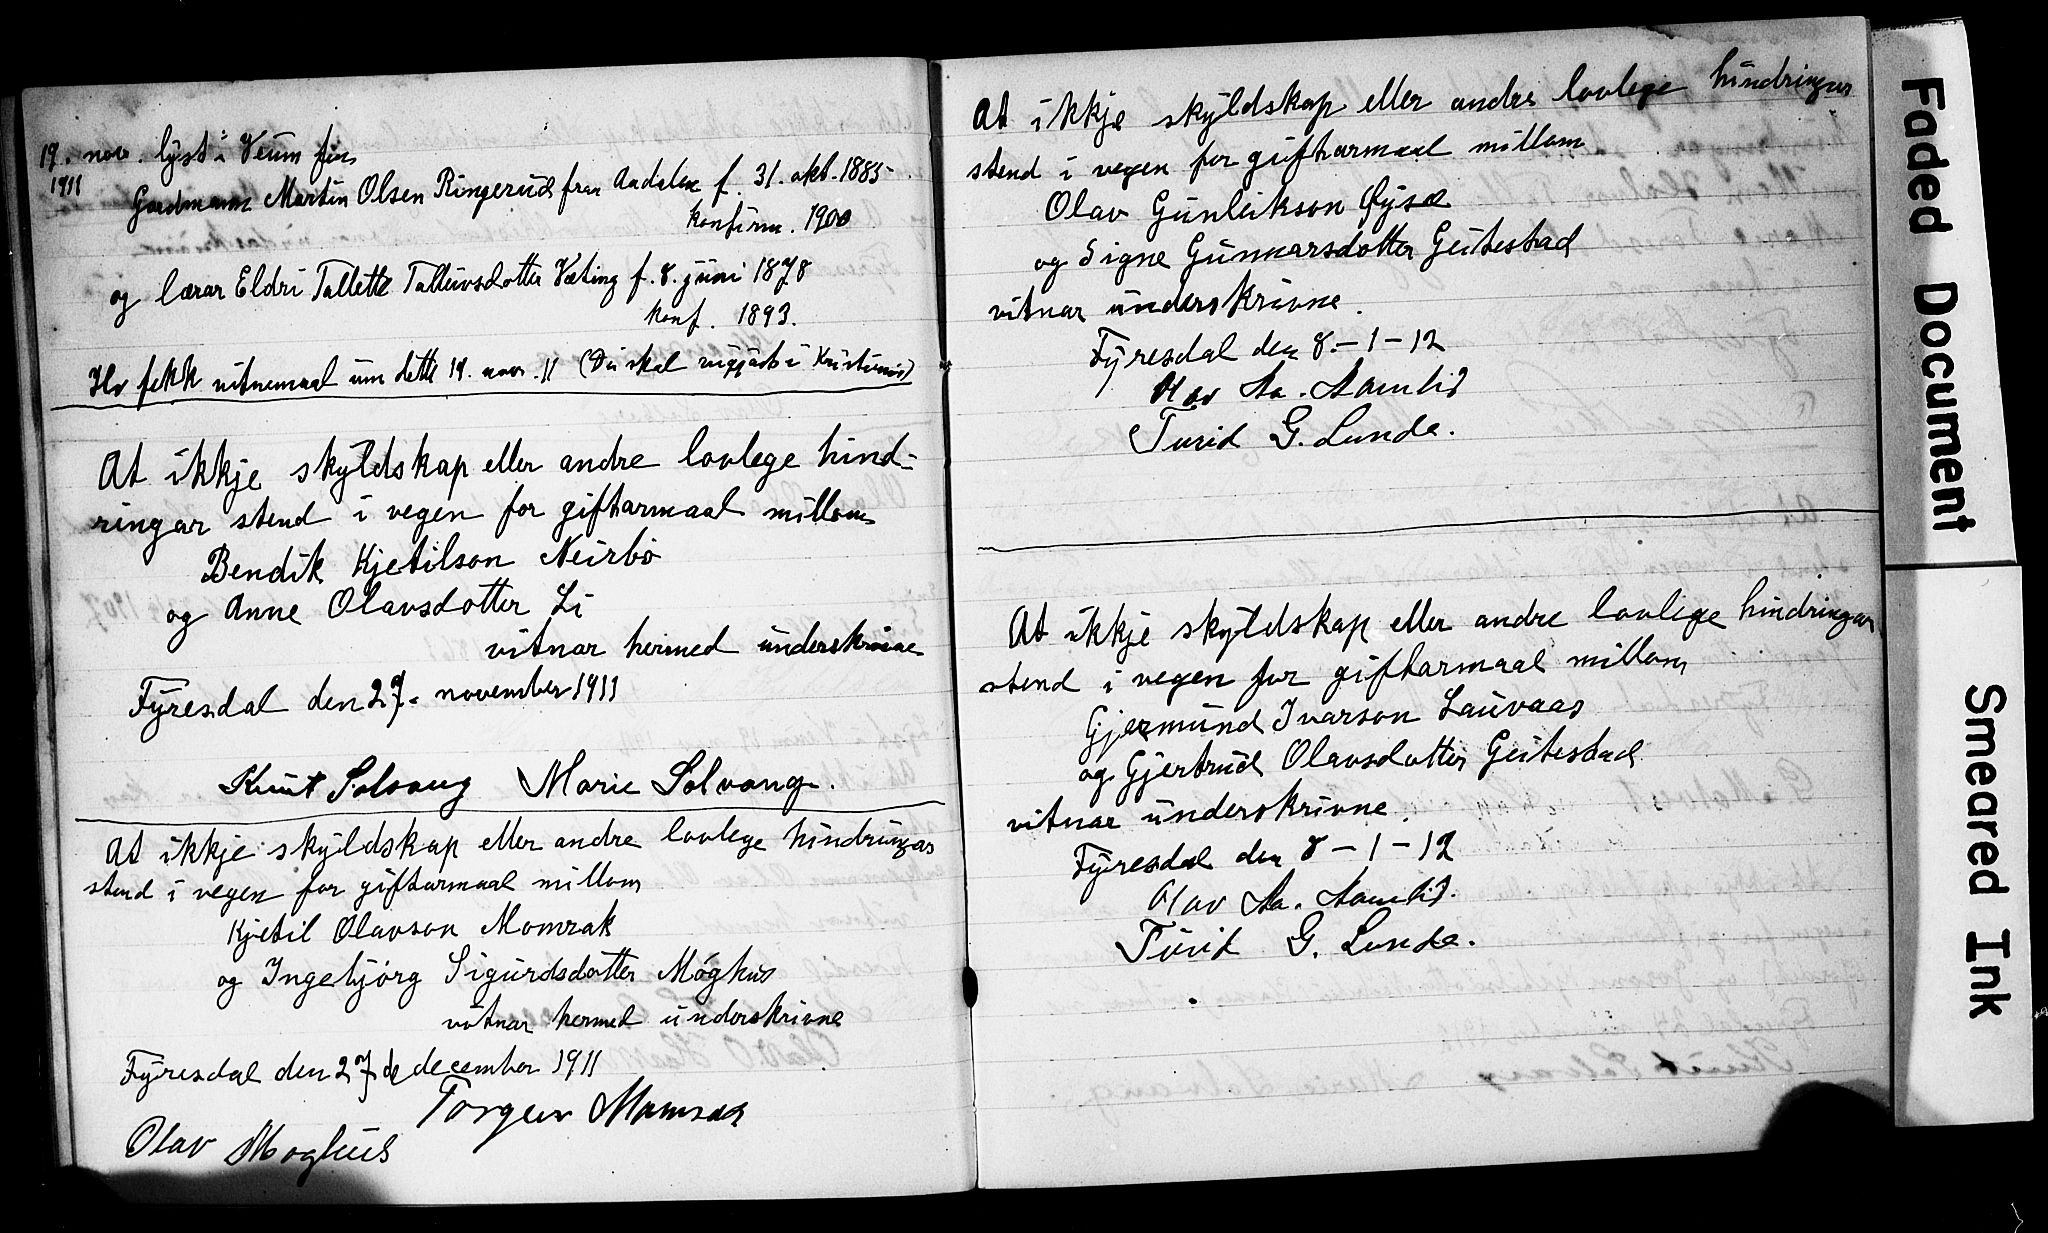 19. nov. lyst i Veum fyr
1911
Gardmann Martin Olsen Ringerud fraa Aadalen f. 31. okt. 1885
konfirm. 1900
og lærar Eldri Tallette Talleivsdotter Væting f. 8. juni 1878
konf. 1893.
Ho fekk vitnemaal um dette 19. nov. 11 (Dei skal vigjast i Kristiania)
At ikkje skyldskap eller andre lovlege hind-
ringar stend i vegen for giftarmaal millom
Bendik Kjetilson Neirbö
og Anne Olavsdotter Li
vitnar hermed underskrivne
Fyresdal den 27. november 1911
Knut Solvang Marie Solvang.
At ikkje skyldskap eller andre lovlege hindringar
stend i vegen for giftarmaal millom
Kjetil Olavson Momrak
og Ingebjörg Sigurdsdotter Möghus
vitnar hermed underskrivne
Fyresdal den 27de december 1911
Torgeir Momrak
Olav Moghus
At ikkje skyldskap eller andre lovlege hindringar
stend i vegen for giftarmaal millom
Olav Gunleikson
og Signe Gunnarsdotter Geitestad
vitnar underskrivne.
Fyresdal den 8.-1-12
Olav Aa. Aamlid
Turid G. Lunde.
At ikkje skyldskap eller andre lovlege hindringar
stend i vegen for giftarmaal millom
Gjermund Ivarson Lauvaas
og Gjertrud Olavsdotter Geitestad
vitnar underskrivne.
Fyresdal den 8-1-12
Olav Aa. Aamlid.
Turid G. Lunde.
Faded Document
Smeared Ink